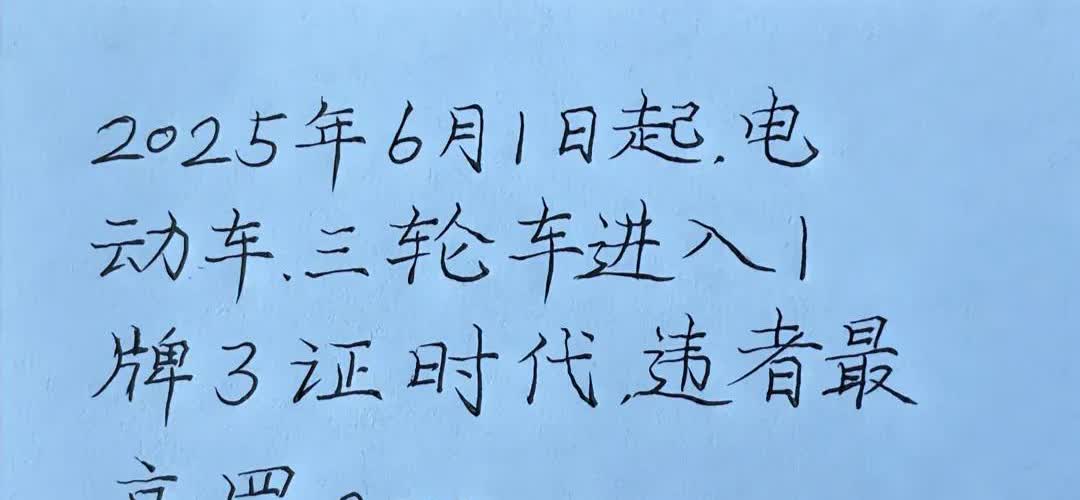 2025年6月1日起,电
动车、三轮车进入1
牌3证时代,违者最
高罚